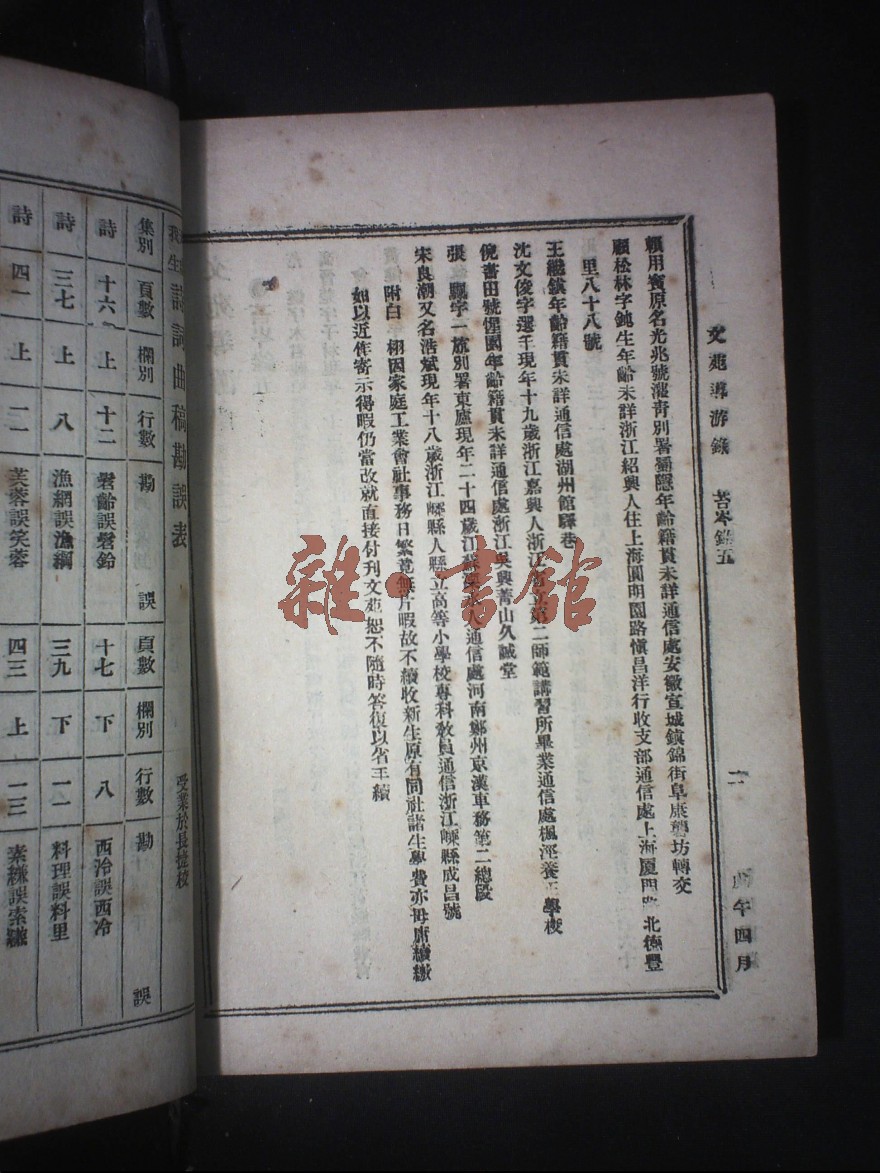 文苑導游錄　苔岑錄五
二　戊午四月
賴用賓原名光兆號澹靑別署蜀隱年齡籍貫未詳通信處安徽宣城鎮錦街阜康醬坊轉交
顧松林字鈍生年齡未詳浙江紹興人住上海圓明園路愼昌洋行收支部通信處上海厦門路北德豐
里八十八號
王繼鎮年齡籍貫未詳通信處湖州館驛巷
沈文俊字選千現年十九歲浙江嘉興人浙江省立第二師範講習所畢業通信處楓涇養正學校
倪書田號惺園年齡籍貫未詳通信處浙江吳興菁山久誠堂
張飄字一飮別署東廬現年二十四歲江蘇人通信處河南鄭州京漢車務第二總段
宋良潮又名浩斌現年十八歲浙江嵊縣人縣立高等小學校專科敎員通信浙江嵊縣成昌號
附白　栩因家庭工業會社事務日繁竟無片暇故不續收新生原有同社諸生學費亦毋庸續繳
如以近作寄示得暇仍當改就直接付刊文苑恕不隨時答復以省手續
我生詩詞曲稿勘誤表　受業於長捷校
集別　頁數　欄別　行數　勘　誤　頁數　欄別　行數　勘　誤
詩　十六　上　十二　髫齡誤髫鈴　十七　下　八　西泠誤西冷
詩　三七　上　八　漁網誤漁綱　三九　下　一一　料理誤料里
詩　四一　上　一一　芙蓉誤笑蓉　四三　上　一三
雜書館